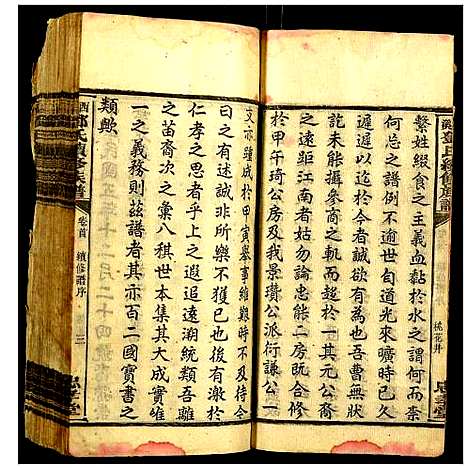 繫姓綴食之主義血黏於水之謂何而柰
何忘之譜例不逾世自道光來曠時已久
遲遲以迄於今者誠欲有為也吾曹無暇
訖未能攝參商之軌而趨於一其元公裔
之遠距江南者姑勿論忠能二房既合修
於甲午琦公房及我景瓚公派衍謙公一
支亦踵成於甲寅舉事維艱時不待令
曰之有述誠非所樂不獲已也後有激於
仁孝之思者乎上之遐追遠溯統類以族
次之彙八秩世本集其大成實獻
之一義務則茲譜者其亦百二國寶書之
類歟
卷首
續修譜序
桃花井
忠孝堂